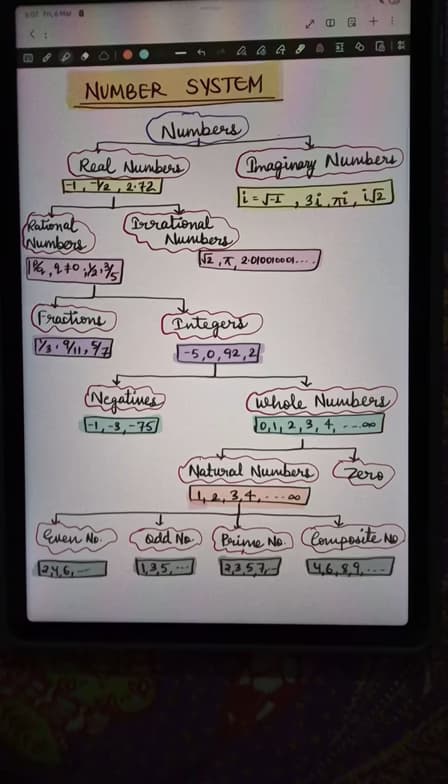 NUMBER SYSTEM
Numbers
Real Numbers
Imaginary Numbers
-1, -1/2, 2.72
i = √-1, 3i, πi, i√2
Rational
Numbers
Irrational
Numbers
q≠0, 1/2, 3/5
√2, π, 2.010010001....
Fractions
Integers
1/3, 9/11, 5/7
-5, 0, 92, 2
Negatives
Whole Numbers
-1, -3, -75
0, 1, 2, 3, 4, ....∞
Natural Numbers
Zero
1, 2, 3, 4, ....∞
Even No.
Odd No.
Prime No.
Composite No
2,4,6,....
1,3,5,...
2,3,5,7,..
4,6,8,9,...